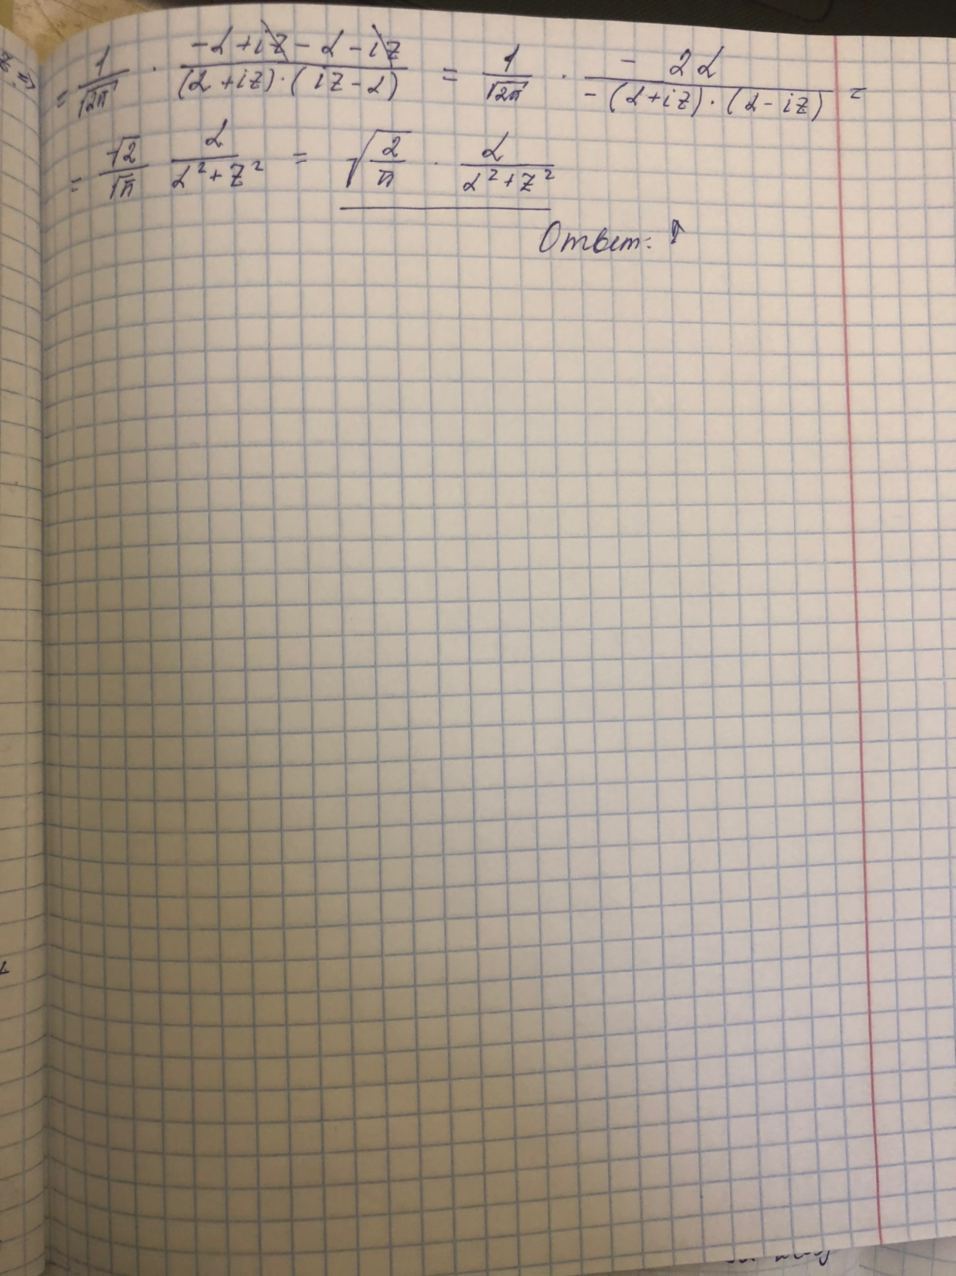 = 1/√2π · (-α + iz - α - iz)/((α + iz) · (iz - α)) = 1/√2π · (- 2α)/(-(α + iz) · (α - iz)) =
= √2/√π α/(α² + z²) = √(2/π) · α/(α² + z²)
Ответ: ↑